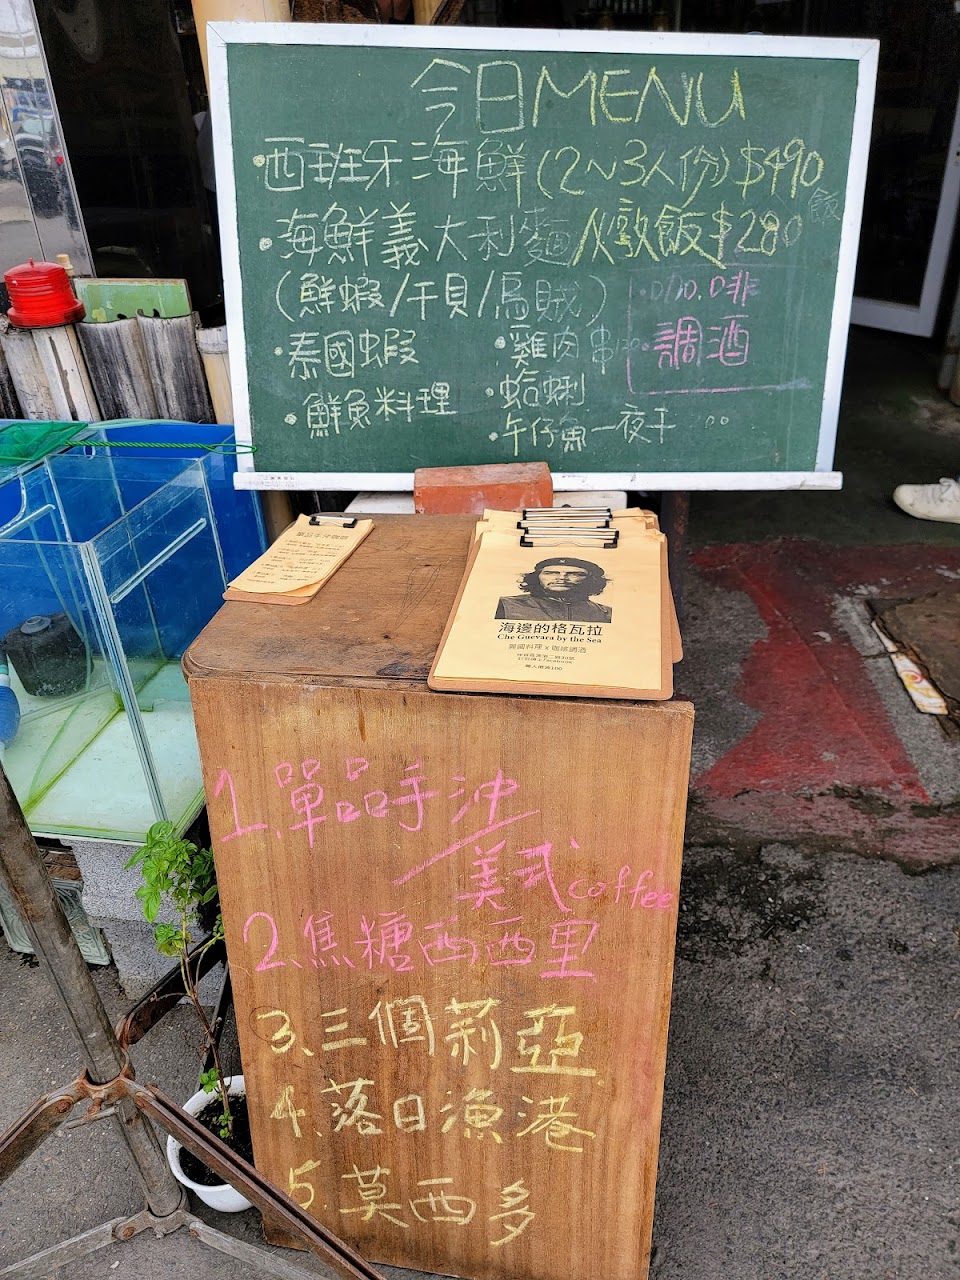 今日MENU
西班牙海鮮(2~3人份)$490
飯
海鮮義大利麵/火燉飯$280
(鮮蝦/干貝/烏賊)
泰國蝦
雞肉串
調酒
鮮魚料理
蛤蜊
午仔魚一夜干
單品手沖咖啡
海邊的格瓦拉
Che Guevara by the Sea
異國料理 x 咖啡調酒
每人低消100
1.單品手沖/
美式coffee
2.焦糖西西里
3.三個莉亞
4.落日漁港
5.莫西多